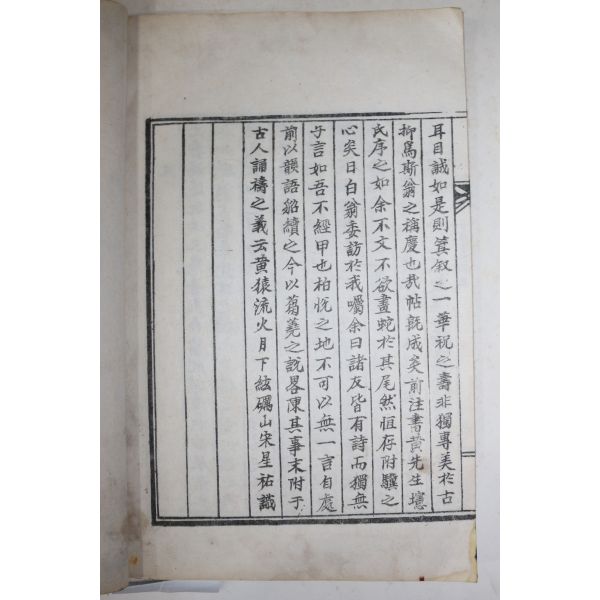 耳目誠如是則箕叙之一華祝之壽非獨專美於古
抑爲斯翁之稱慶也哉帖旣成矣前注書黃先生璁
氏序之如余不文不欲畫蛇於其尾然恒存附驥之
心矣日白翁委訪於我囑余曰諸友皆有詩而獨無
子言如吾不經甲也柏悅之地不可以無一言自處
前以韻語貂續之今以蒭蕘之說畧陳其事末附于
古人誦禱之義云黃猿流火月下絃礪山宋星祐識